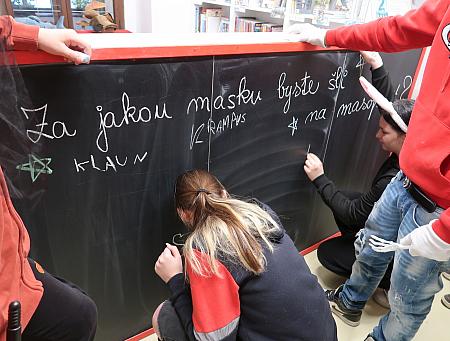 Za jakou masku byste šli
na masop
KRAMPUS
KLAUN